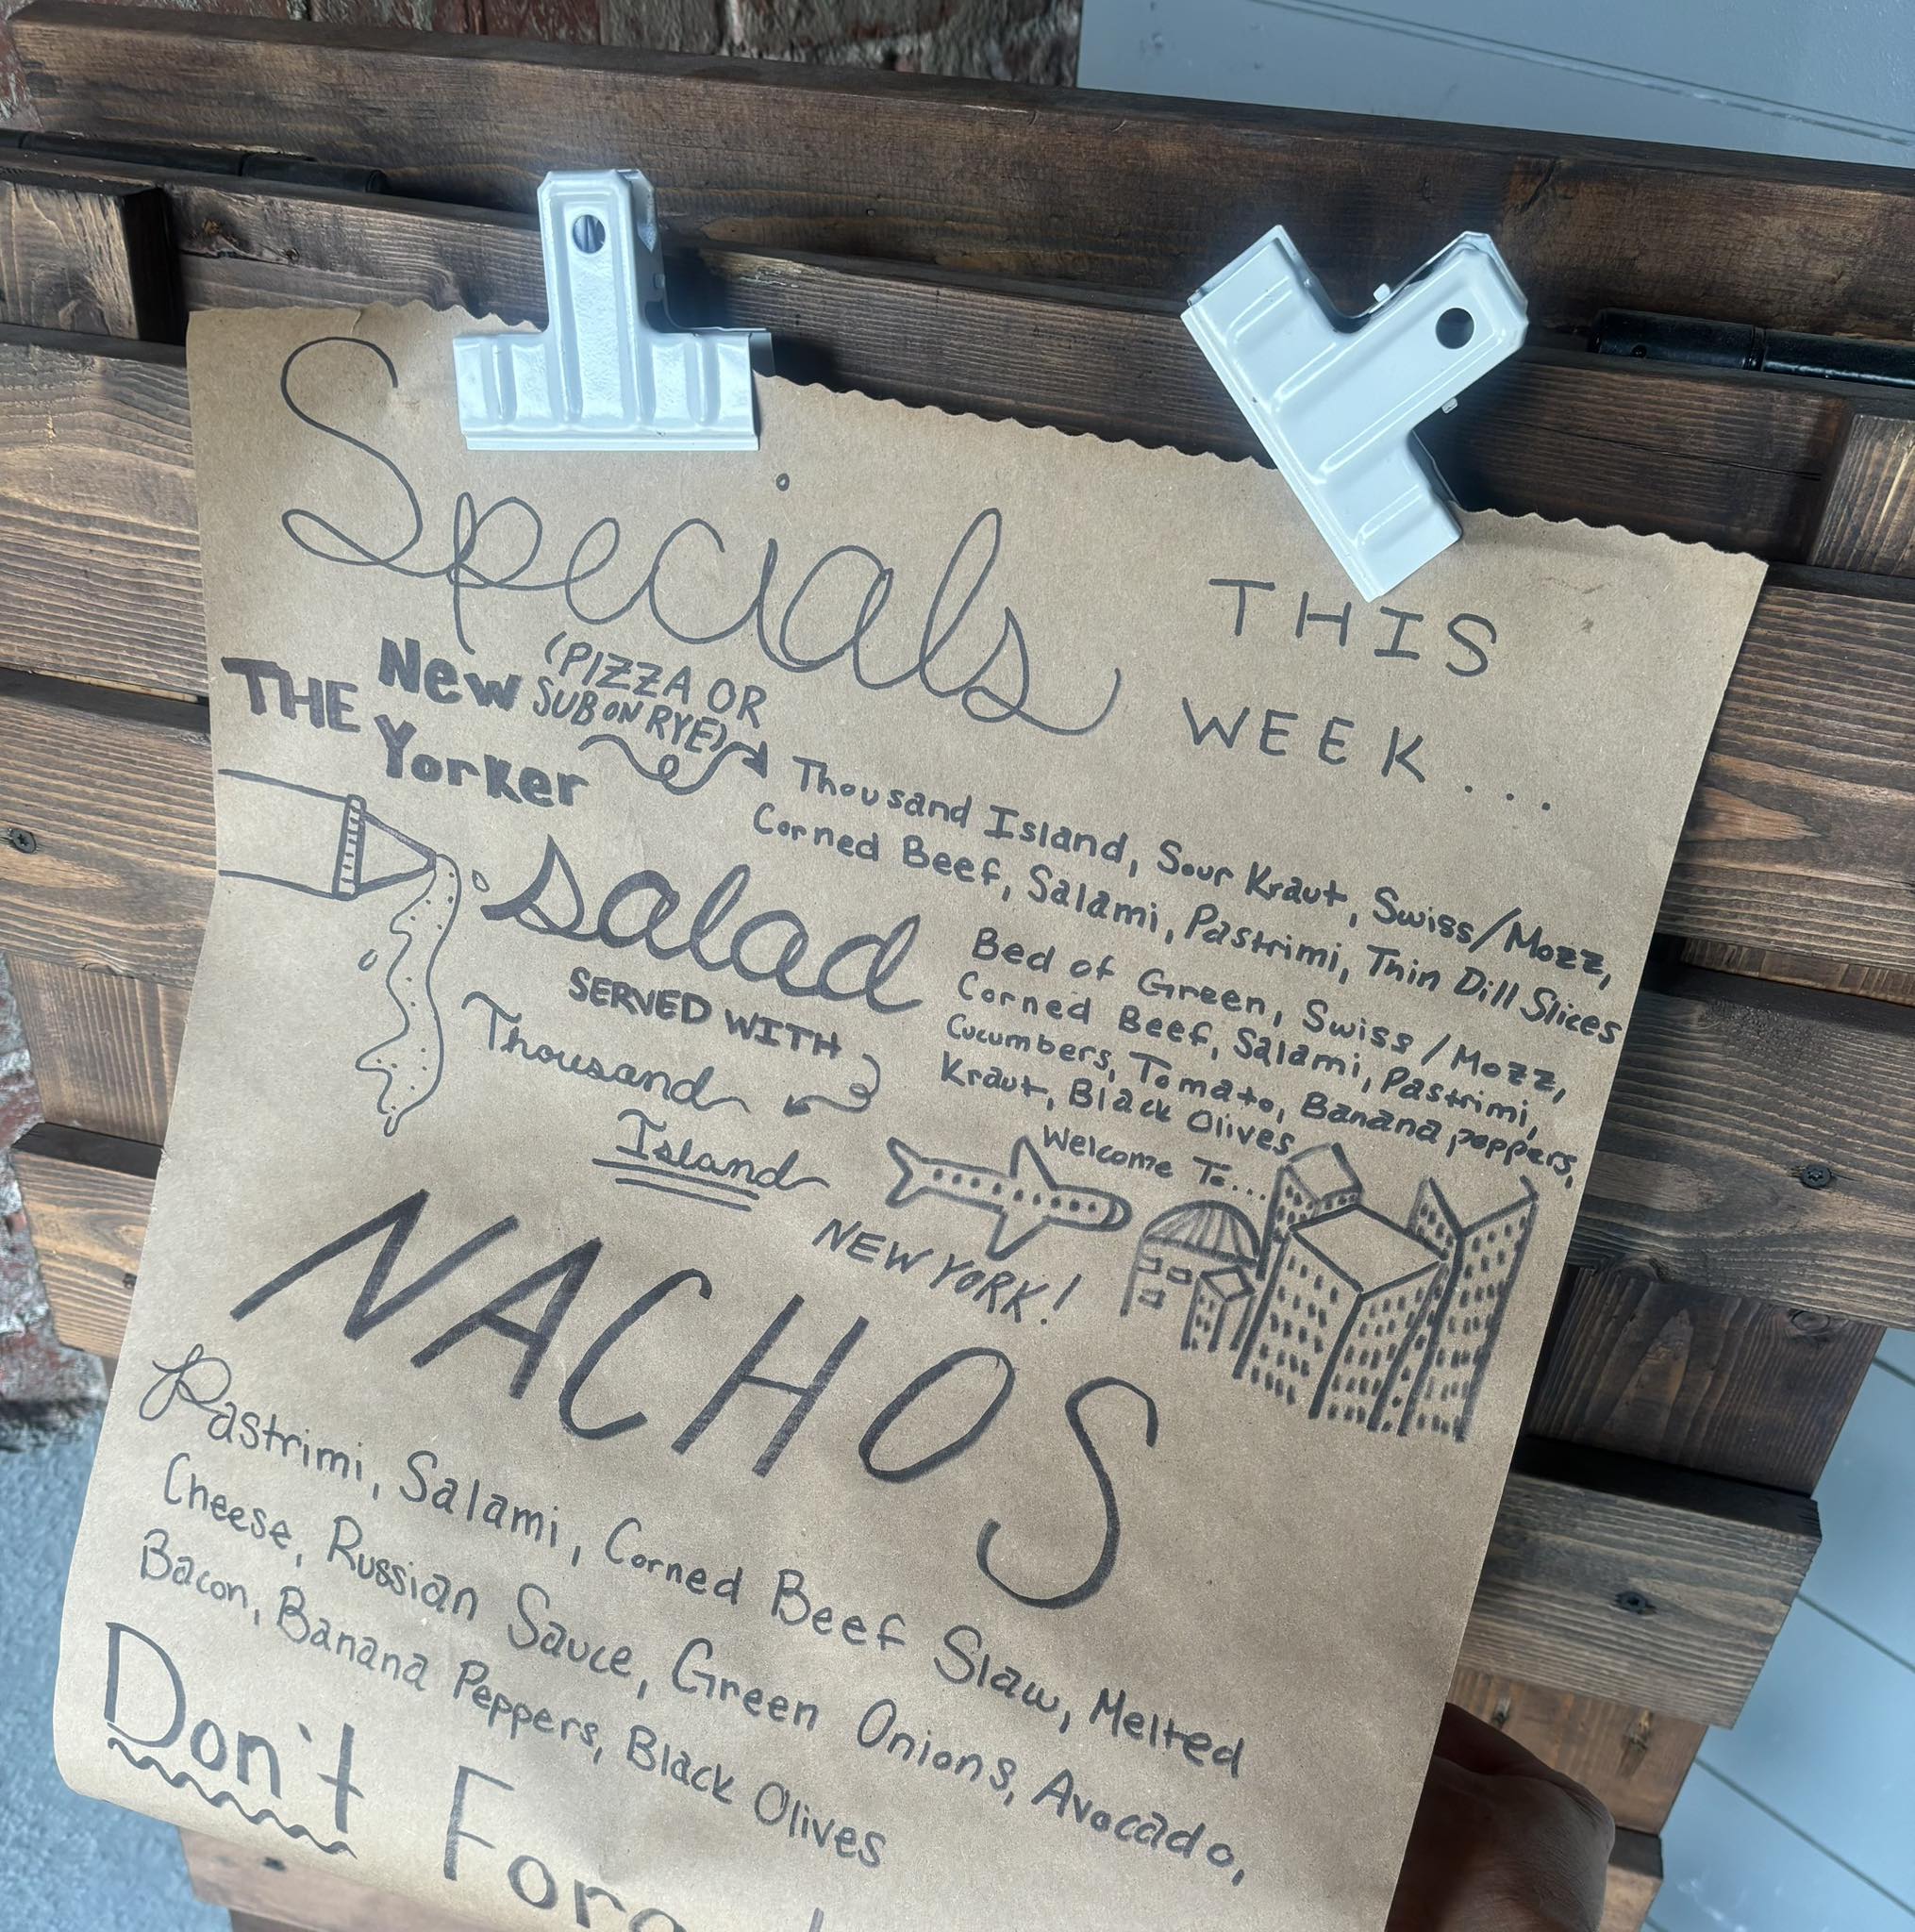 Specials THIS
WEEK...
THE New Yorker
(PIZZA OR
SUB ON RYE)
Thousand Island, Sour Kraut, Swiss/Mozz,
Corned Beef, Salami, Pastrimi, Thin Dill Slices
salad
SERVED WITH
Thousand
Island
Bed of Green, Swiss/Mozz,
Corned Beef, Salami, Pastrimi,
Cucumbers, Tomato, Banana peppers,
Kraut, Black Olives
Welcome To...
NEW YORK!
NACHOS
Pastrimi, Salami, Corned Beef Slaw, Melted
Cheese, Russian Sauce, Green Onions, Avocado,
Bacon, Banana Peppers, Black Olives
Don't